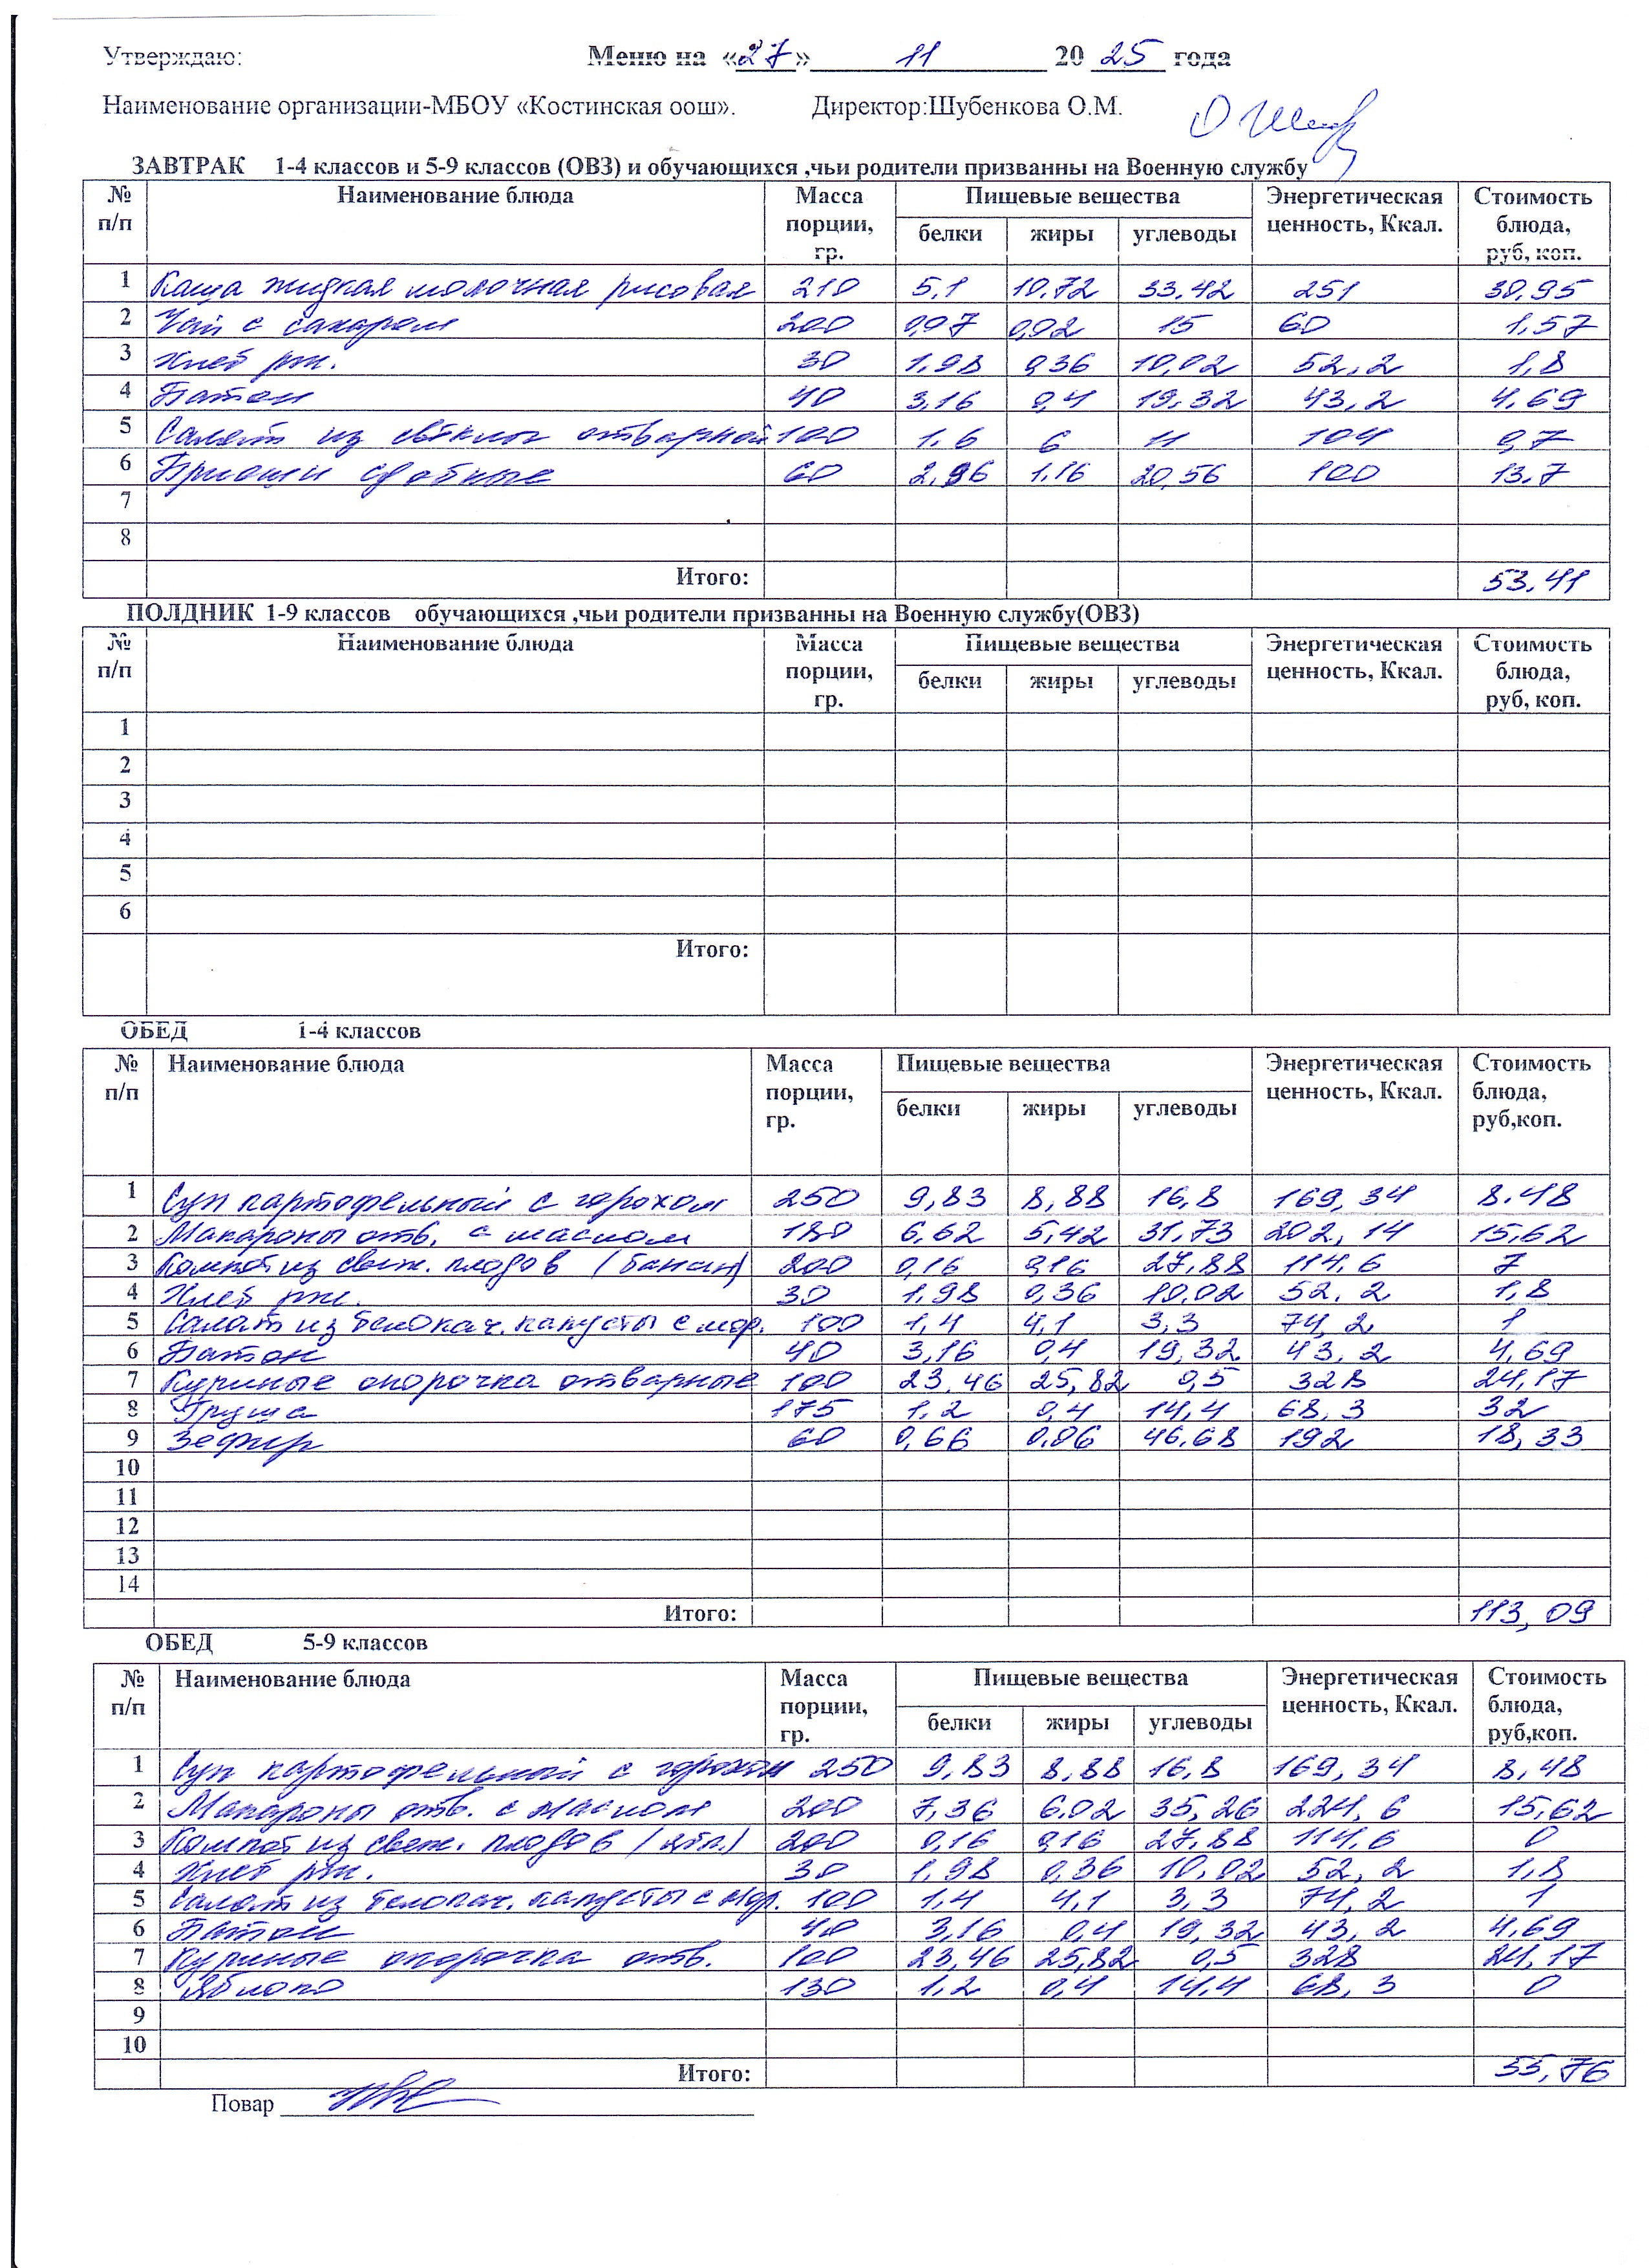 Утверждаю: Меню на «27» 11 20 25 года
Наименование организации-МБОУ «Костинская оош». Директор:Шубенкова О.М.
ЗАВТРАК 1-4 классов и 5-9 классов (ОВЗ) и обучающихся ,чьи родители призванны на Военную службу
№ п/п Наименование блюда Масса порции, гр. Пищевые вещества Энергетическая ценность, Ккал. Стоимость блюда, руб, коп.
белки жиры углеводы
1 Каша жидкая молочная рисовая 210 5,1 10.72 33.42 251 30,95
2 Чай с сахаром 200 0,07 0,02 15 60 1,57
3 Хлеб рж. 30 1,98 0,36 10,02 52,2 1,8
4 Батон 40 3,16 0,4 19,32 43,2 4,69
5 Салат из свёклы отварной 100 1.6 6 11 104 0,7
6 Бриоши сдобные 60 2,96 1.16 20,56 100 13.7
7
8
Итого: 53.41
ПОЛДНИК 1-9 классов обучающихся ,чьи родители призванны на Военную службу(ОВЗ)
№ п/п Наименование блюда Масса порции, гр. Пищевые вещества Энергетическая ценность, Ккал. Стоимость блюда, руб, коп.
белки жиры углеводы
1
2
3
4
5
6
Итого:
ОБЕД 1-4 классов
№ п/п Наименование блюда Масса порции, гр. Пищевые вещества Энергетическая ценность, Ккал. Стоимость блюда, руб,коп.
белки жиры углеводы
1 Суп картофельный с горохом 250 9,83 8,88 16,8 169,34 8.48
2 Макароны отв. с маслом 180 6,62 5,42 31,73 202,14 15,62
3 Компот из свеж. плодов (банан) 200 0,16 0,16 27,88 114,6 7
4 Хлеб рж. 30 1,98 0,36 10.02 52.2 1,8
5 Салат из белокач. капусты с мор. 100 1,4 4,1 3,3 74,2 1
6 Батон 40 3,16 0,4 19,32 43,2 4,69
7 Куриные окорочка отварные 100 23,46 25,82 0,5 328 24,17
8 Груша 175 1,2 0,4 14,4 68,3 32
9 Зефир 60 0,66 0.06 46,68 192 18,33
10
11
12
13
14
Итого: 113,09
ОБЕД 5-9 классов
№ п/п Наименование блюда Масса порции, гр. Пищевые вещества Энергетическая ценность, Ккал. Стоимость блюда, руб,коп.
белки жиры углеводы
1 Суп картофельный с горохом 250 9,83 8,88 16,8 169,34 8,48
2 Макароны отв. с маслом 200 7,36 6.02 35,26 224,6 15,62
3 Компот из свеж. плодов 200 0,16 0,16 27,88 114,6 0
4 Хлеб рж. 30 1,98 0,36 10,02 52,2 1,8
5 Салат из белокач. капусты с мор. 100 1,4 4,1 3,3 74,2 1
6 Батон 40 3,16 0,4 19,32 43,2 4,69
7 Куриные окорочка отв. 100 23,46 25,82 0,5 328 24,17
8 Яблоко 130 1,2 0,4 14,4 68,3 0
9
10
Итого: 55,76
Повар